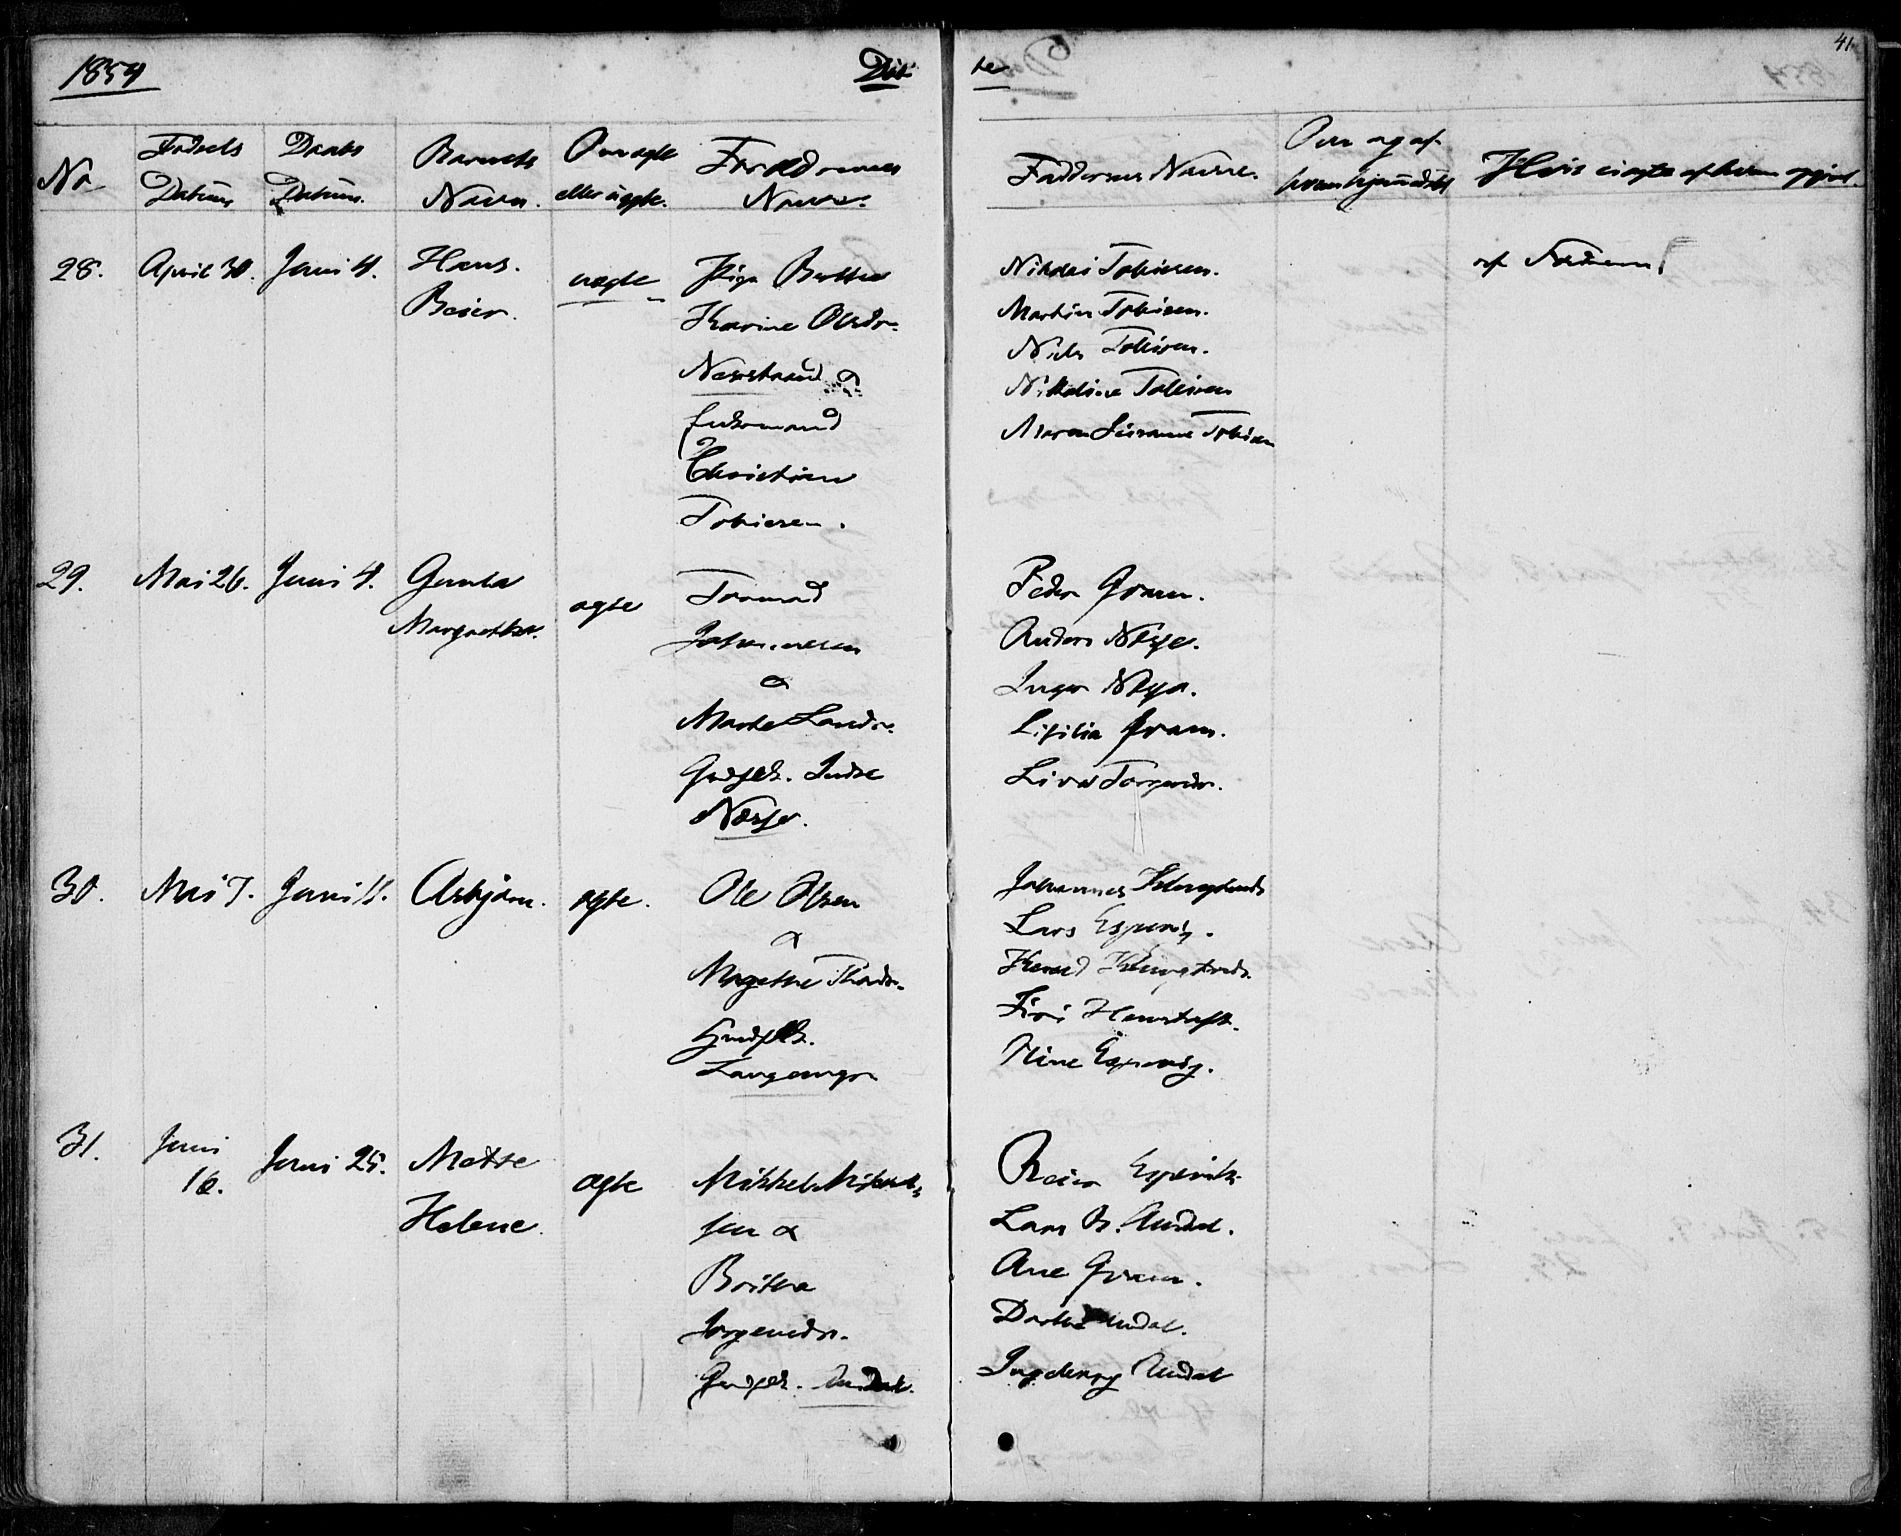 1854
Døb
te
41
No
Fødsels
Datum
Daabs
Datum.
Barnets
Navn.
Om ægte
eller uægte.
Forældrenes
Navne.
Faddernes Navne.
Hvis uægte af hvem opgivet.
28.
April 30.
Juni 4.
Hans.
Beier.
uægte
Pige Berthe
Karine Olsdr.
Næsstrand &
Enkemand
Christian
Tobiesen.
Nikolai Tobiesen.
Martin Tobiesen.
Niels Tobiesen.
Nikoline Tobiesen
Maren Susanne Tobiesen
af Faderen
29.
Mai 26.
Juni 4.
Gunla
Margrethe.
ægte
Tormod
Johannesen
&
Marthe Larsdr.
Grdflk. Indre
Næsje.
Peder Qvam.
Anders Næsje.
Inger Næsje.
Lisilia Qvam.
Liva Torgersdr.
30.
Mai 7.
Juni 11.
Asbjörn.
ægte.
Ole Olsen
&
Margethe Thordr.
Grdflk.
Langenger
Johannes
Lars Espevig.
Stine Espevig.
31.
Juni
16.
Juni 25.
Mette
Helene.
ægte
Mikkel Mikkel-
sen &
Britha
Jørgensdr.
Grdflk. Undal.
Beier Espevik
Lars B. Undal.
Ane Qvam.
Dorthe Undal.
Ingeborg Undal